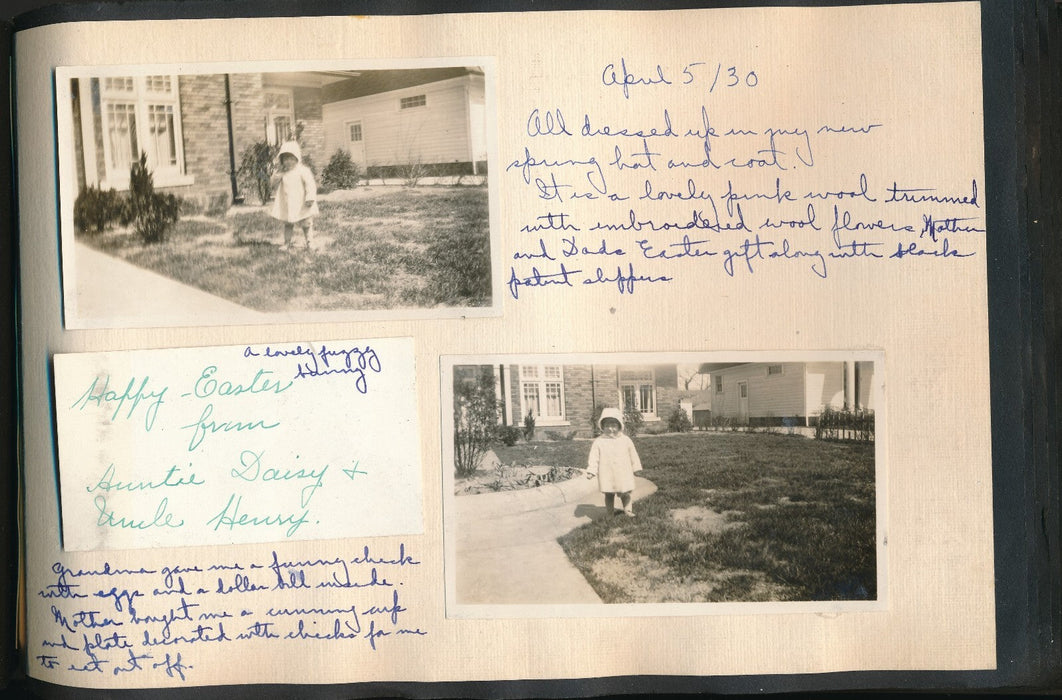 April 5/30
All dressed up in my new
spring hat and coat.
It is a lovely pink wool trimmed
with embroidered wool flowers, Mother
and Dads Easter gift along with black
patent slippers
a lovely fuzzy
bunny
Happy - Easter
from
Auntie Daisy &
Uncle Henry.
Grandma gave me a funny chick
with eggs and a dollar bill inside.
Mother bought me a cunning cup
and plate decorated with chicks for me
to eat out off.